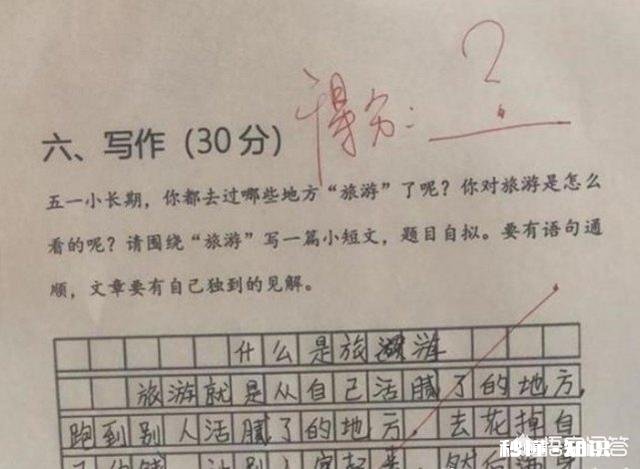 得分：?
六、写作（30分）
五一小长期，你都去过哪些地方“旅游”了呢？你对旅游是怎么
看的呢？请围绕“旅游”写一篇小短文，题目自拟。要有语句通
顺，文章要有自己独到的见解。
什么是旅游
旅游就是从自己活腻了的地方，
跑到别人活腻了的地方。去花掉自
悟空问答